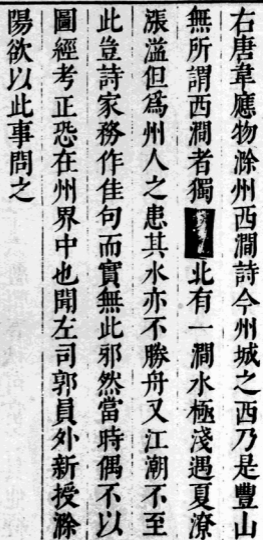 右唐韋應物滁州西澗詩今州城之西乃是豐山
無所謂西澗者獨北有一澗水極淺遇夏潦
漲溢但為州人之患其水亦不勝舟又江潮不至
此豈詩家務作佳句而實無此邪然當時偶不以
圖經考正恐在州界中也聞左司郭員外新授滁
陽欲以此事問之